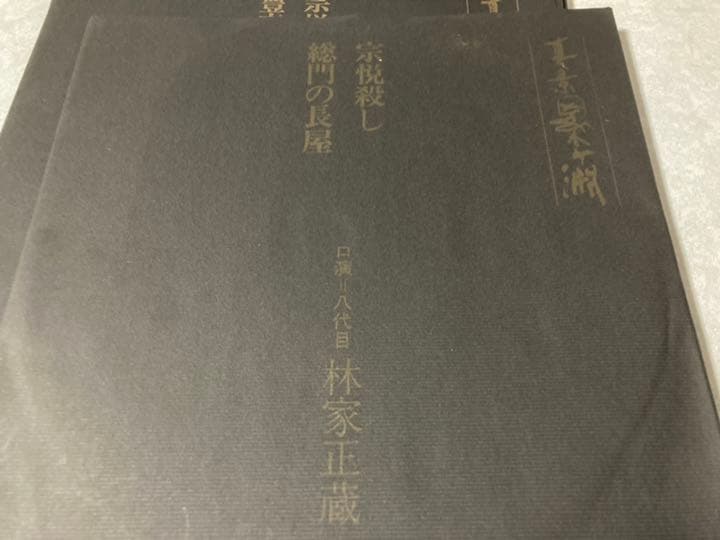 真景累ヶ淵
宗悦殺し
総門の長屋
口演=八代目 林家正蔵